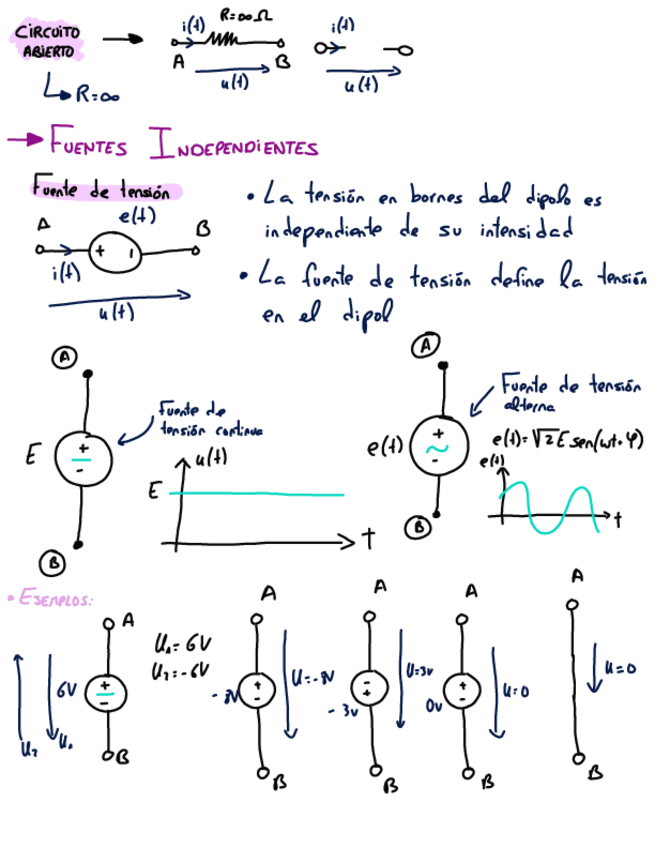 CIRCUITO
ABIERTO
R=∞
i(t) R=∞Ω
A B
u(t)
i(t)
u(t)
FUENTES INDEPENDIENTES
Fuente de tensión
e(t)
A B
+ -
i(t)
u(t)
• La tensión en bornes del dipolo es
independiente de su intensidad
• La fuente de tensión define la tensión
en el dipol
A
E
+
-
B
Fuente de
tensión continua
u(t)
E
t
A
e(t)
+
~
-
B
Fuente de tensión
alterna
e(t)=√2 E sen(wt+φ)
e(t)
t
• EJEMPLOS:
A
6V
+
-
B
U₂ U₁
U₁=6V
U₂=-6V
A
+
-
B
A
-
+
- 3V
U=3V
B
A
+
-
0V
U=0
B
A
U=0
B